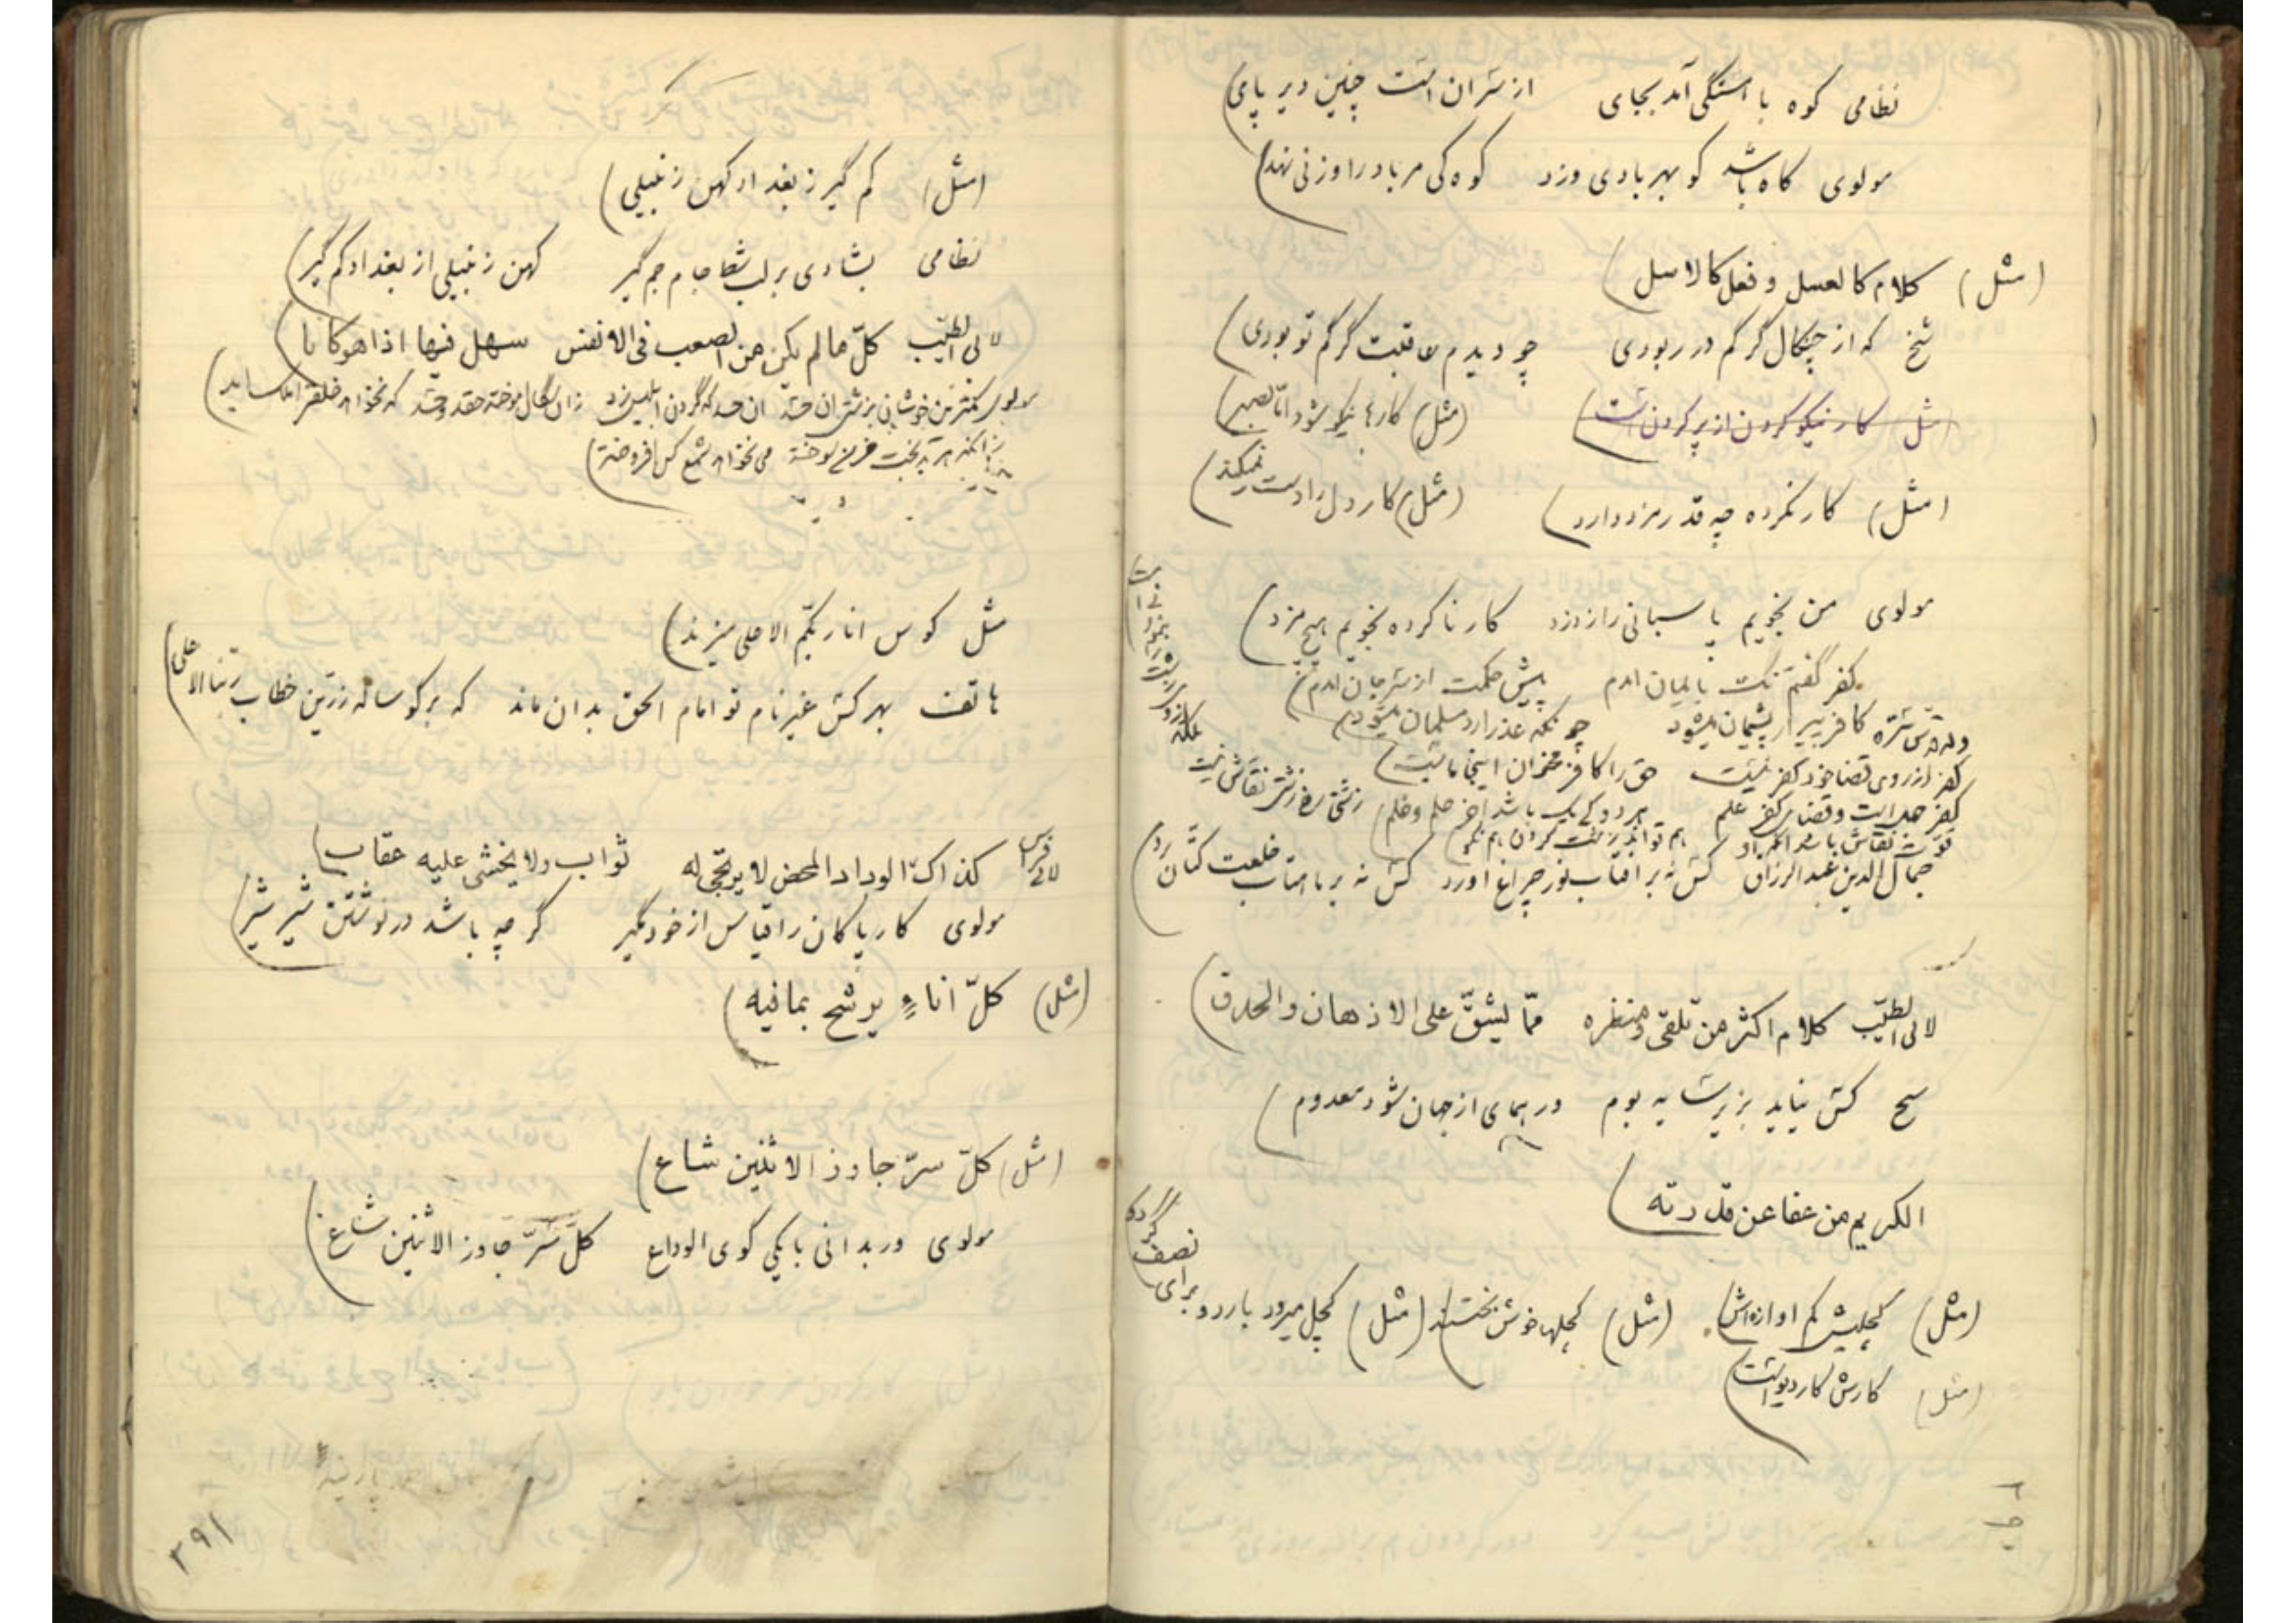 نظامی کوه با استگی آمد بجای از سران است چنین دیر پای)
مولوی کاه باشد کو بهر بادی وزد کوه کی مر باد را وزنی نهد)
(مثل) کلام کالعسل و فعل کالاسل)
شیخ که از چنکال گرگم در ربودی چو دیدم عاقبت گرگم تو بودی)
مثل کار نیکو کردن از پر کردن است) (مثل) کارها نیکو شود اما بصبر)
(مثل) کار نکرده چه قدر مزد دارد) (مثل) کار دل را دست نمیکند)
مولوی من نجویم پاسبانی را ز دزد کار ناکرده نجویم هیچ مزد)
کفر گفتم نک بایمان امدم پیش حکمت از سر جان امدم)
کافر پیر ار پشیمان میشود چونکه عذر ارد مسلمان میشود)
کفر از روی قضا خود کفر نیست حق را کافر مخوان اینجا مایست)
کفر جهل است و قضای کفر علم هر دو کی یک باشد اخر حلم و خلم) زشتی خط زشتی نقاش نیست
بلکه از وی زشت را بنمود نی است
قوت نقاش باشد انکه او هم تواند زشت کردن هم نکو
جمال الدین عبد الرزاق کس نه بر افتاب نور چراغ اورد کس نه بر ماهتاب خلعت کتان برد)
لابی الطیّب کلام اکثر من تلقی و منظره ممّا یشقّ علی الاذهان والحدق)
شیخ کس نیاید بزیر سایه بوم ور همای از جهان شود معدوم)
الکریم من عفا عن قدرته)
(مثل) کچلیش کم اوازه اش) (مثل) کچلها خوش بختند) (مثل) کچل میرود باردو برای نصف گردو
(مثل) کارش کار دیو است)
(مثل) کم گیر ز بغداد کهن زنبیلی)
نظامی بشادی بر لب شط جام جم گیر کهن زنبیلی از بغداد کم گیر)
لابی الطیّب کلّ ما لم یکن من الصعب فی الانفس سهل فیها اذا هو کانا)
مولوی کمترین خوشان بزشتی ان حسد ان حسد که گردن ابلیس زد
زانکه هر بدبخت خرمن سوخته می نخواهد شمع کس افروخته)
مثل کوس انا ربّکم الاعلی میزند)
هاتف بهر کس غیر نام تو امام الحق بدان ماند که بر گوساله زرّین خطاب ربّنا الاعلی)
لابی فراس کذاک الوداد المحض لا یرتجی له ثواب ولا یخشی علیه عقاب)
مولوی کار پاکان را قیاس از خود مگیر گر چه باشد در نوشتن شیر شیر)
(مثل) کلّ اناءٍ یرشح بما فیه)
(مثل) کلّ سرّ جاوز الاثنین شاع)
مولوی ور بدانی با یکی گوی الوداع کلّ سرّ جاوز الاثنین شاع)
۳۹۱